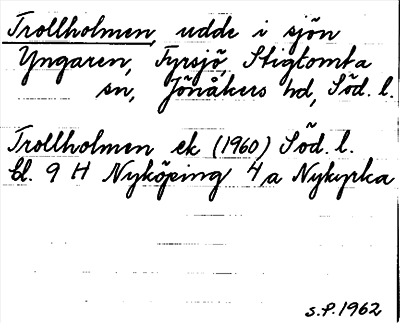 Trollholmen, udde i sjön
Yngaren, Fyrsjö, Stigtomta
sn, Jönåkers hd, Söd. l.
Trollholmen ek (1960) Söd. l.
bl. 9 H Nyköping 4 a Nykyrka
S.P. 1962